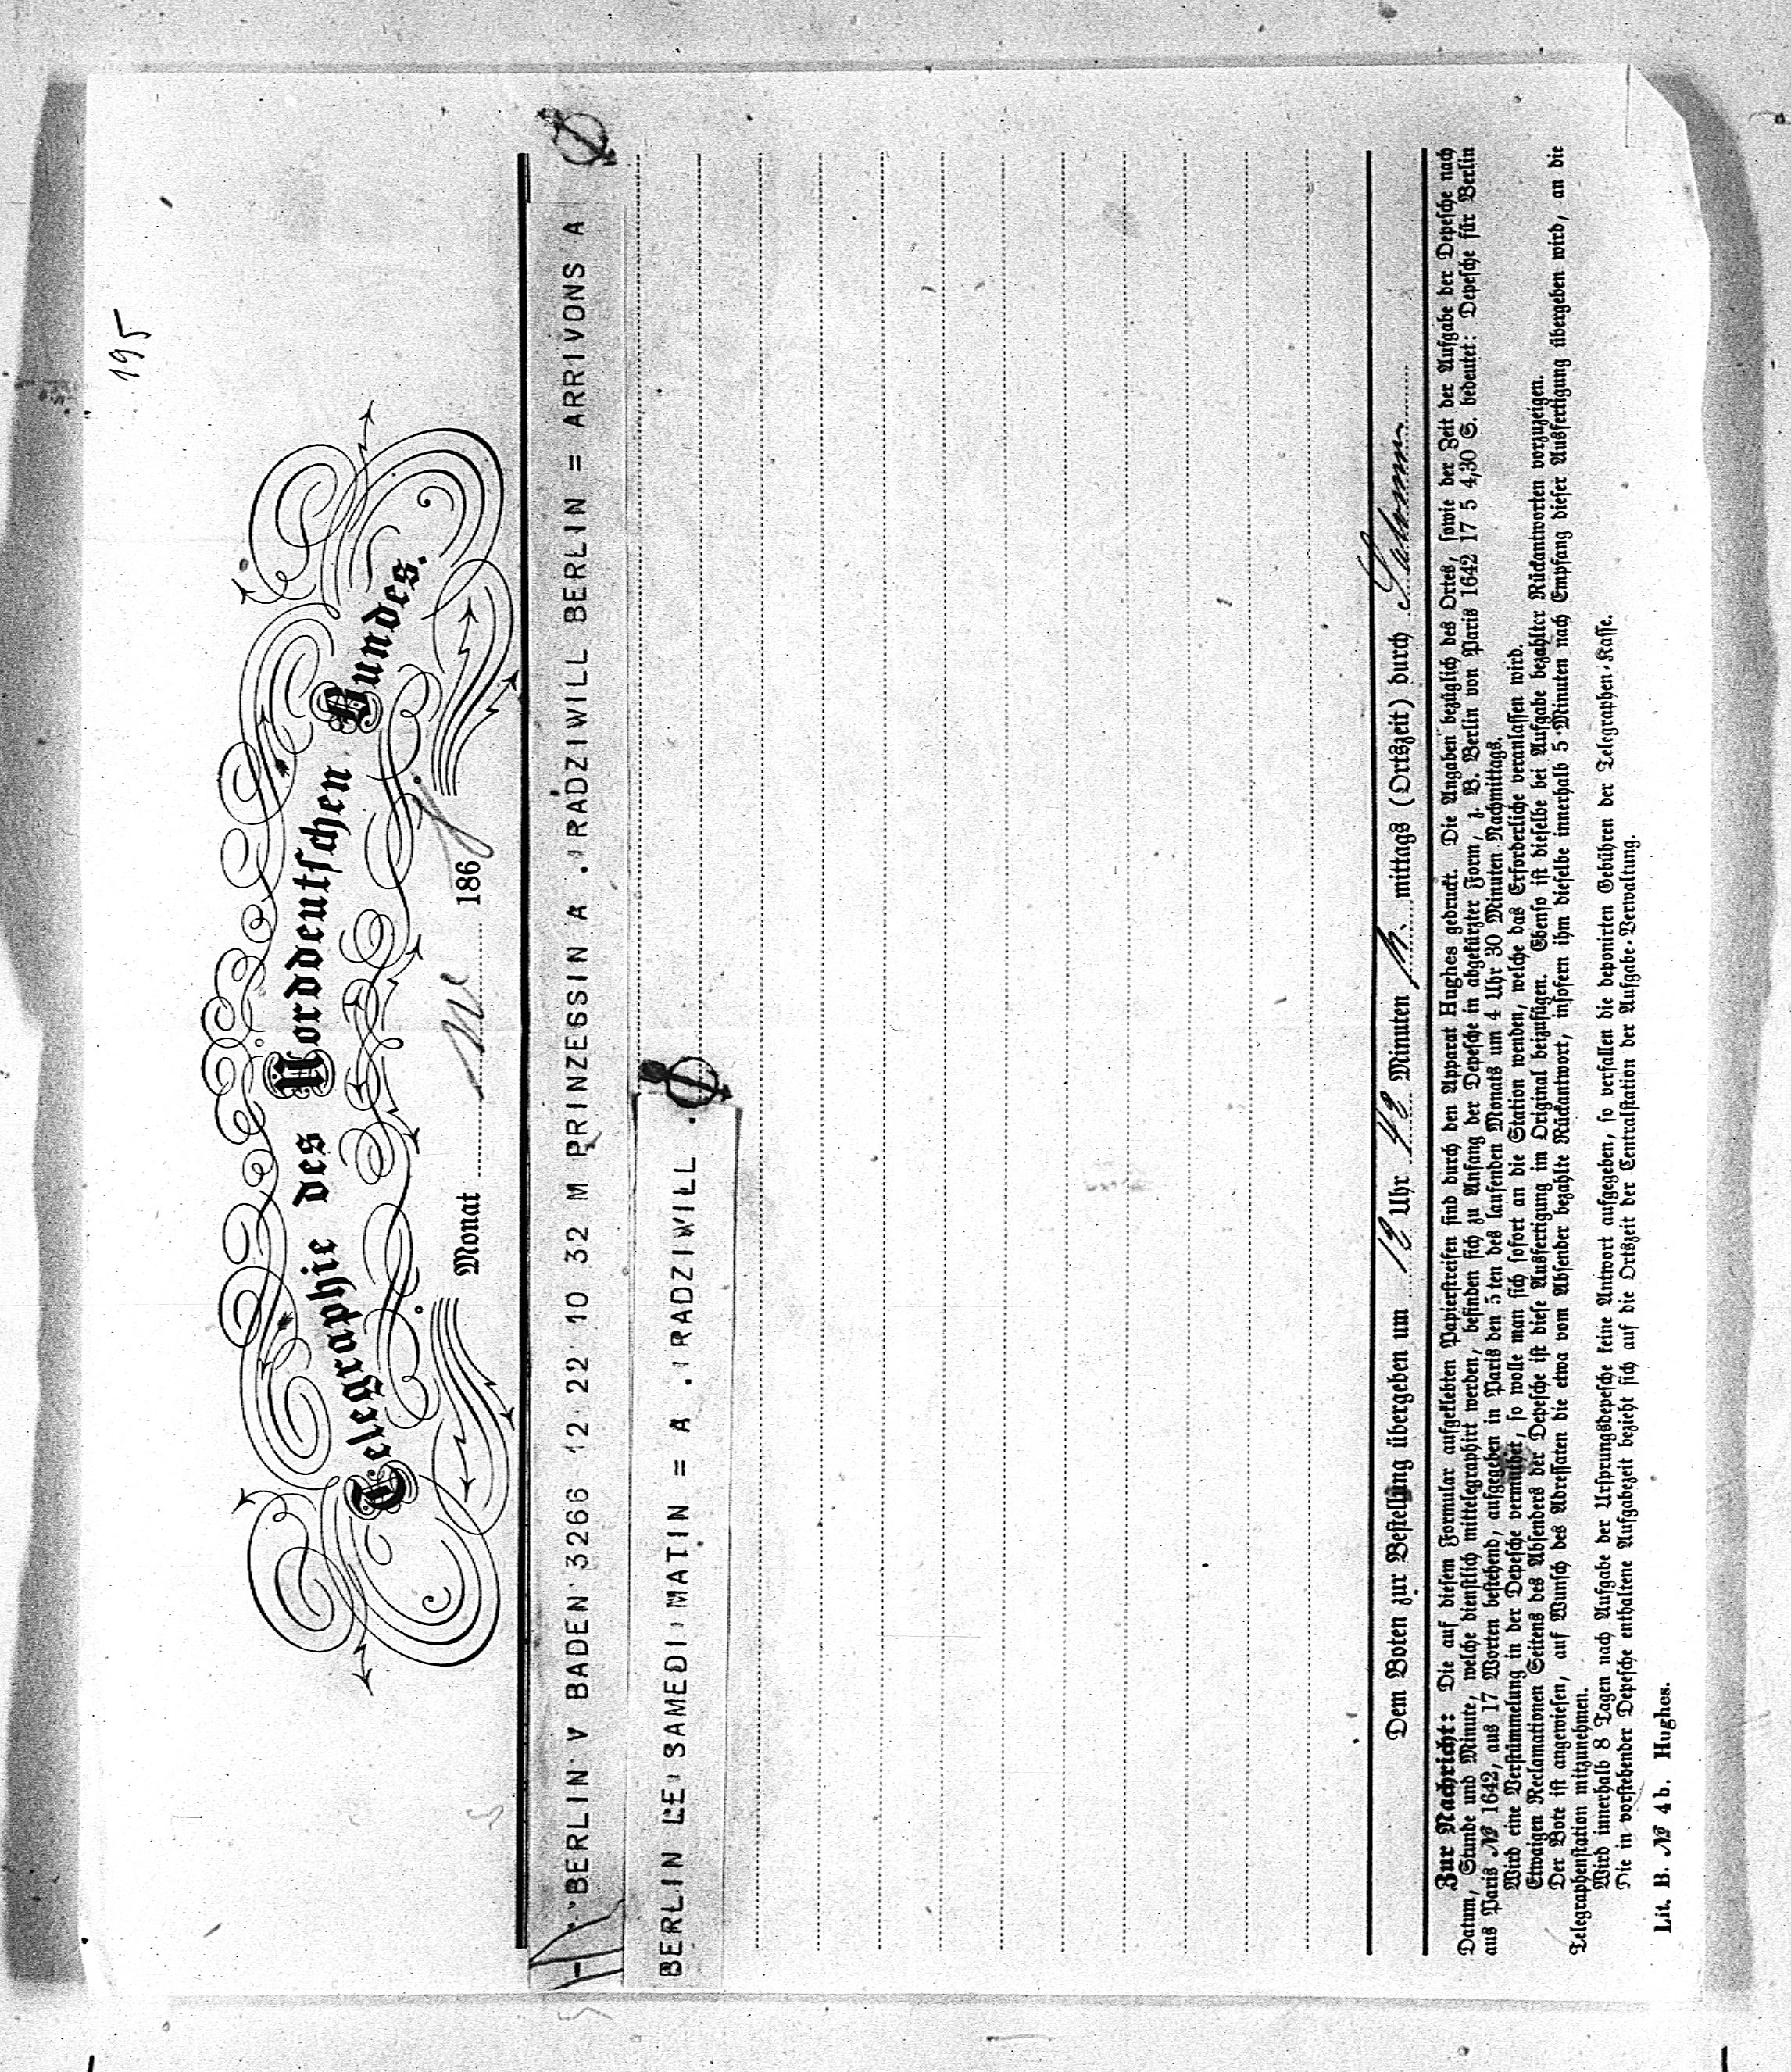 195
Telegraphie des Norddeutschen Bundes.
Monat 186
BERLIN V BADEN 3266 12 22 10 32 M PRINZESSIN A . RADZIWILL BERLIN = ARRIVONS A
BERLIN LE SAMEDI MATIN = A . RADZIWILL .
Dem Boten zur Bestellung übergeben um 12 Uhr 42 Minuten mittags (Ortszeit) durch
Zur Nachricht: Die auf diesem Formular aufgeklebten Papierstreifen sind durch den Apparat Hughes gedruckt. Die Angaben bezüglich des Ortes, sowie der Zeit der Aufgabe der Depesche nach
Datum, Stunde und Minute, welche dienstlich mittelegraphirt werden, befinden sich zu Anfang der Depesche in abgekürzter Form, z. B. Berlin von Paris 1642 17 5 4,30 S. bedeutet: Depesche für Berlin
aus Paris № 1642, aus 17 Worten bestehend, aufgegeben in Paris den 5 ten des laufenden Monats um 4 Uhr 30 Minuten Nachmittags.
Wird eine Verstümmelung in der Depesche vermuthet, so wolle man sich sofort an die Station wenden, welche das Erforderliche veranlassen wird.
Etwaigen Reclamationen Seitens des Absenders der Depesche ist diese Ausfertigung im Original beizufügen. Ebenso ist dieselbe bei Aufgabe bezahlter Rückantworten vorzuzeigen.
Der Bote ist angewiesen, auf Wunsch des Adressaten die etwa vom Absender bezahlte Rückantwort, insofern ihm dieselbe innerhalb 5 Minuten nach Empfang dieser Ausfertigung übergeben wird, an die
Telegraphenstation mitzunehmen.
Wird innerhalb 8 Tagen nach Aufgabe der Ursprungsdepesche keine Antwort aufgegeben, so verfallen die deponirten Gebühren der Telegraphen-Kasse.
Die in vorstehender Depesche enthaltene Aufgabezeit bezieht sich auf die Ortszeit der Centralstation der Aufgabe-Verwaltung.
Lit. B. № 4 b. Hughes.